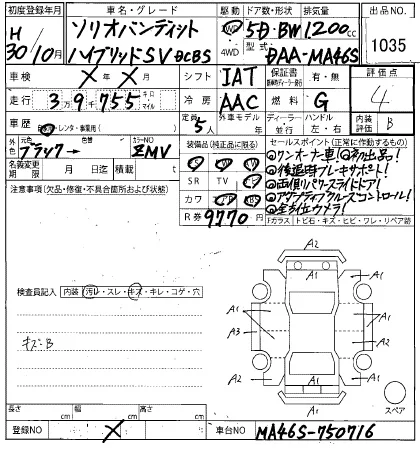 初度登録年月 車名・グレード 駆動 ドア数・形状 排気量 出品NO.
H 30/10月 ソリオバンディット 2WD 5D・BW 1200cc 1035
ハイブリッドSV DCBS 4WD 型式 DAA-MA46S
車検 X年X月 シフト IAT 保証書 有・無 評価点
走行 39,755 キロ マイル 冷房 AAC 燃料 G 4
車歴 自家用・レンタ・事業用( ) 定員 5人 外車モデル 年 ディーラー 並行 ハンドル 左・右 内装評価 B
外色 元色 ブラック→ 色替 カラーNO ZMV 装備品(純正品に限る) セールスポイント(正常に作動するもの)
名義変更期限 月 日迄 積載 t SR TV
注意事項(欠品・修復・不具合箇所および状態) カワ
R券 9770円
①ワンオーナー車!②初出品!
③後退時ブレーキサポート!
④両側パワースライドドア!
⑤アダプティブクルーズコントロール!
⑥全方位カメラ!
Fガラス トビ石・キズ・ヒビ・ワレ・リペア跡
A2
検査員記入 内装 汚レ・スレ・キズ・キレ・コゲ・穴
キズ・B
A1 A1 A1
A3 A1
A1 A1
A2 A2
A2
スペア
長さ cm 幅 cm 高さ cm
登録NO X 車台NO MA46S-750716